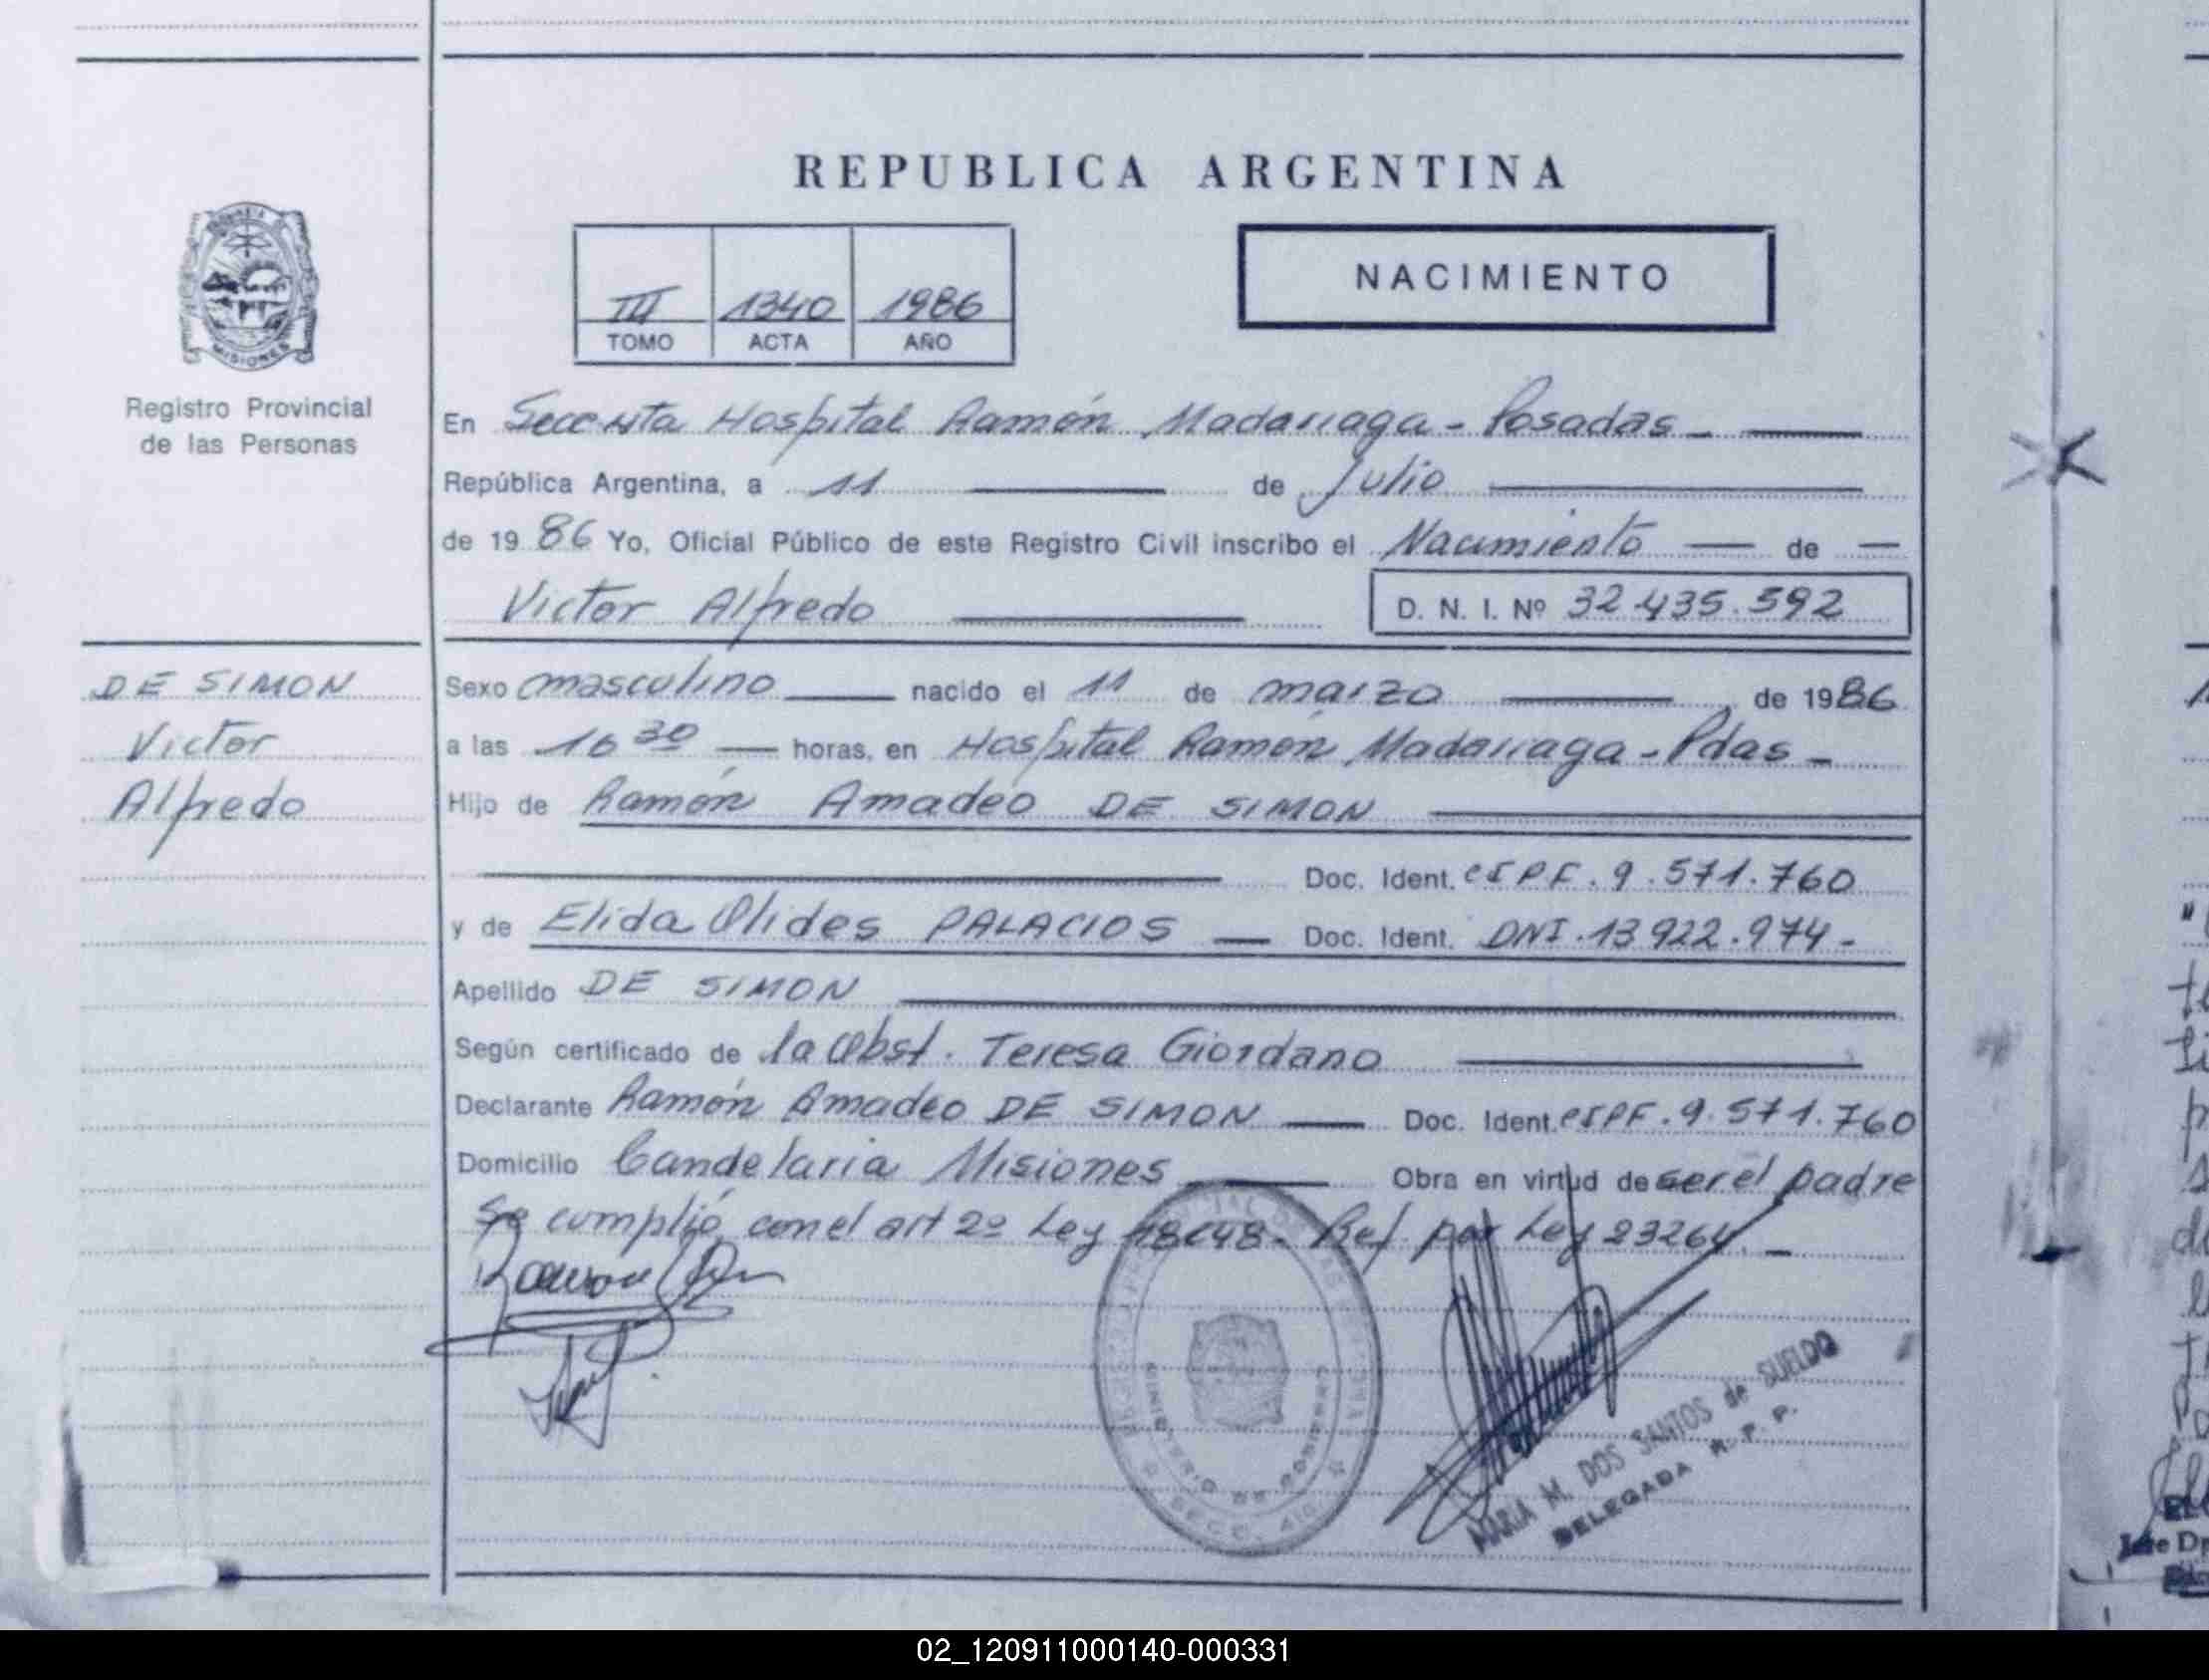 REPUBLICA ARGENTINA
NACIMIENTO
III 1340 1986
TOMO ACTA AÑO
MISIONES
Registro Provincial
de las Personas
En Seccsita Hospital Ramón Madariaga - Posadas -
República Argentina, a 11 de Julio
de 1986 Yo, Oficial Público de este Registro Civil inscribo el Nacimiento de
Victor Alfredo D. N. I. Nº 32.435.592
DE SIMON
Victor
Alfredo
Sexo masculino nacido el 11 de marzo de 1986
a las 16 30 horas, en Hospital Ramón Madariaga - Pdas -
Hijo de Ramón Amadeo DE SIMON
Doc. Ident. CIPF. 9.571.760
y de Elida Olides PALACIOS Doc. Ident. DNI. 13.922.974 -
Apellido DE SIMON
Según certificado de la Obst. Teresa Giordano
Declarante Ramón Amadeo DE SIMON Doc. Ident. CIPF. 9.571.760
Domicilio Candelaria Misiones Obra en virtud de ser el padre
Se cumplió con el art 2º Ley 18248. Ref. por Ley 23264. -
MINISTERIO DE GOBIERNO
MARIA M. DOS SANTOS de SUELDO
DELEGADA R. P. P.
02_120911000140-000331